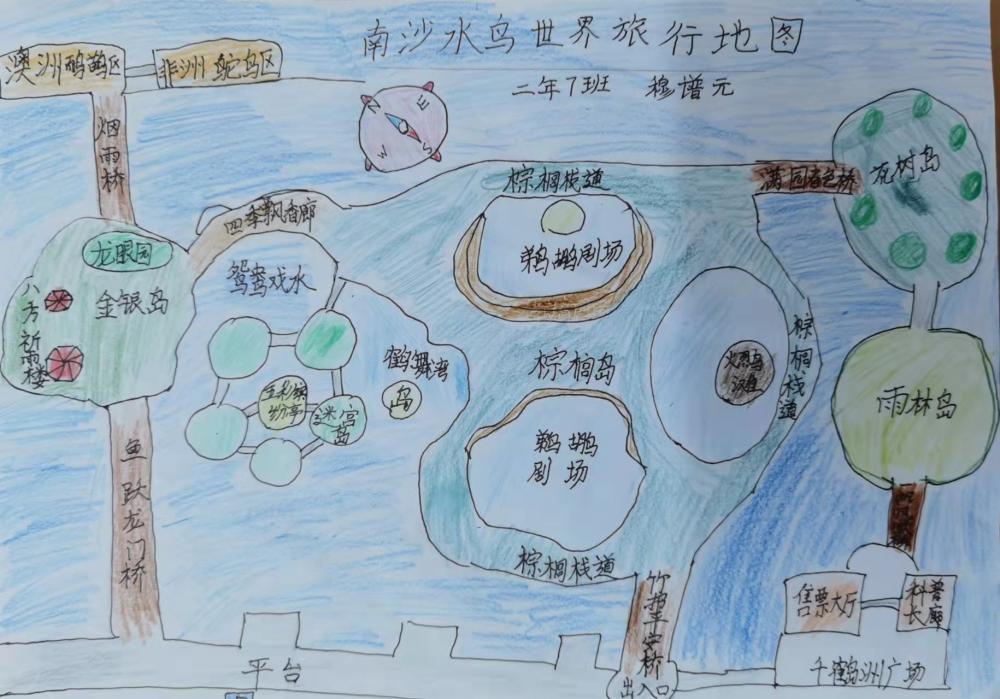 南沙水鸟世界旅行地图
二年7班 穆谱元
澳洲鸸鹋区
非洲鸵鸟区
烟雨桥
N
E
W
S
棕榈栈道
满园春色桥
花树岛
四季飘香廊
龙眼园
金银岛
八方祈雨楼
鸳鸯戏水
鹈鹕剧场
棕榈岛
棕榈栈道
火烈鸟滩
鹤舞湾
岛
迷宫岛
雨林岛
鹈鹕剧场
鱼跃龙门桥
棕榈栈道
竹报平安桥
售票大厅
科普长廊
平台
出入口
千鹤洲广场